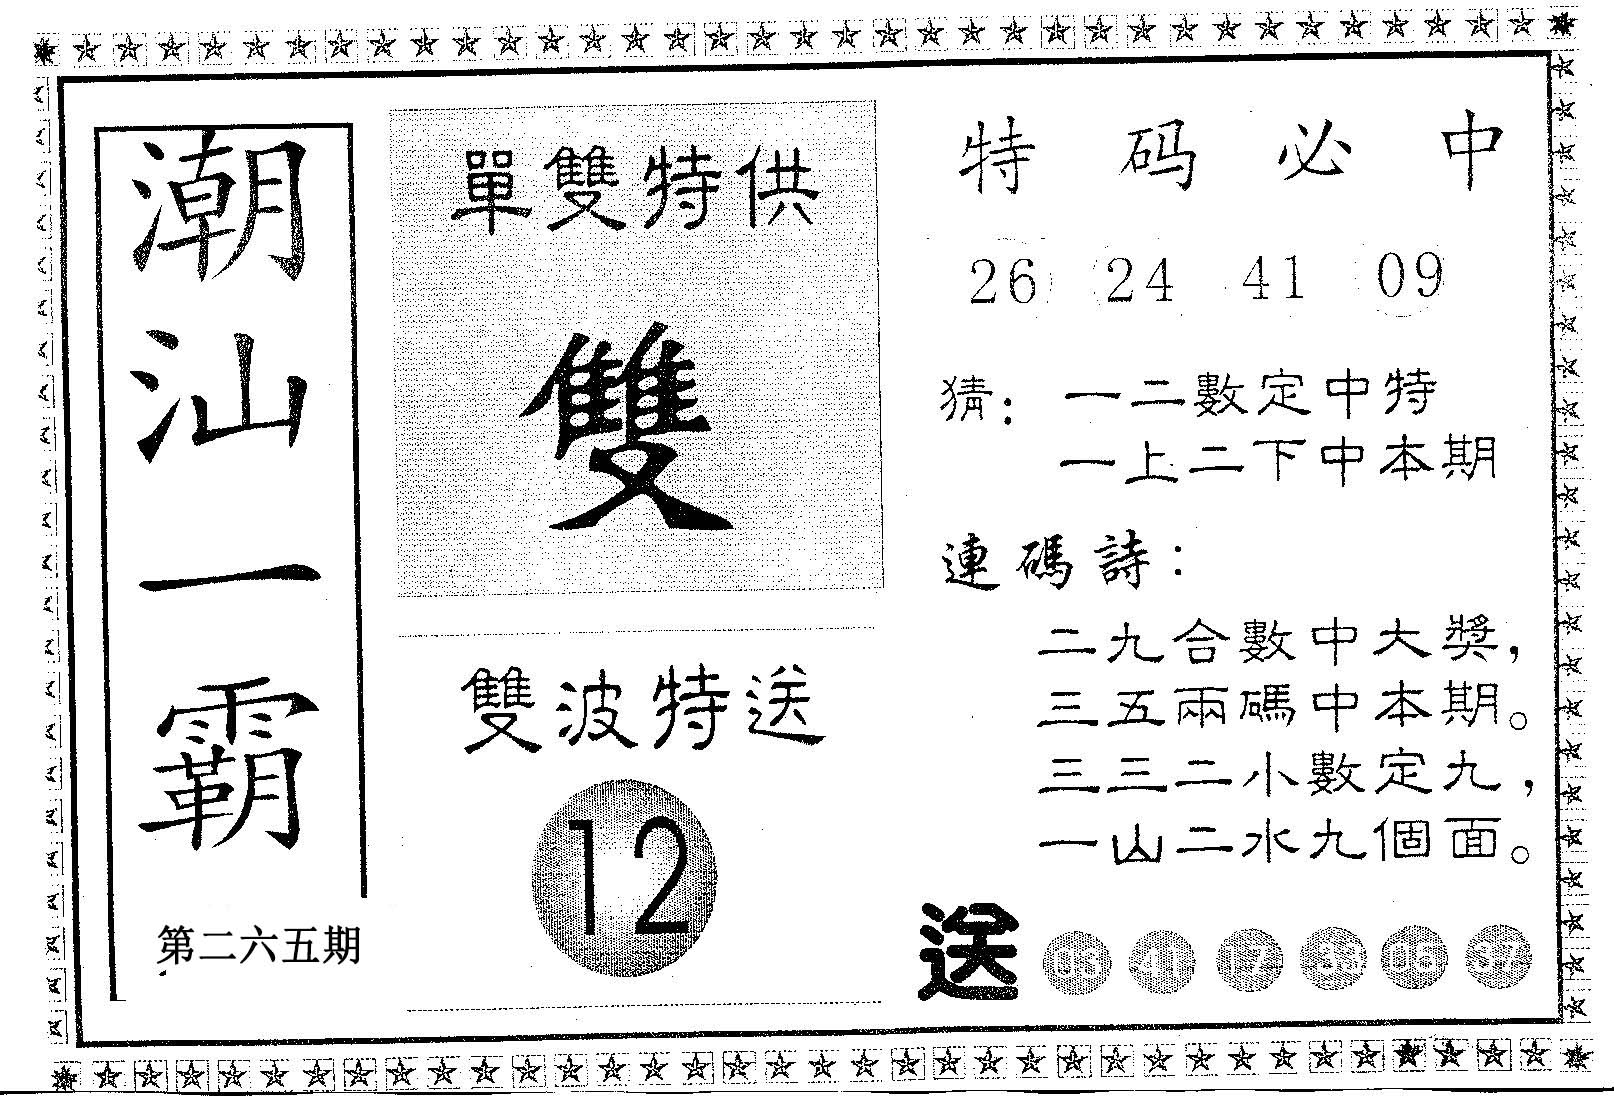 潮汕一霸
第二六五期
單雙特供
雙
雙波特送
12
特码必中
26 24 41 09
猜：一二數定中特
一上二下中本期
連碼詩：
二九合數中大獎，
三五兩碼中本期。
三三二小數定九，
一山二水九個面。
送 03 41 17 33 06 37